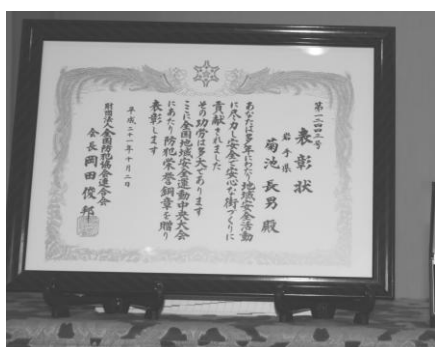 第一二四三号
表彰状
岩手県
菊池長男殿
あなたは多年にわたり地域安全活動
に尽力し安全で安心な街づくりに
貢献されました
その功労は多大であります
ここに全国地域安全運動中央大会
にあたり防犯栄誉銅章を贈り
表彰します
平成二十一年十月二日
財団法人全国防犯協会連合会
会長岡田俊邦